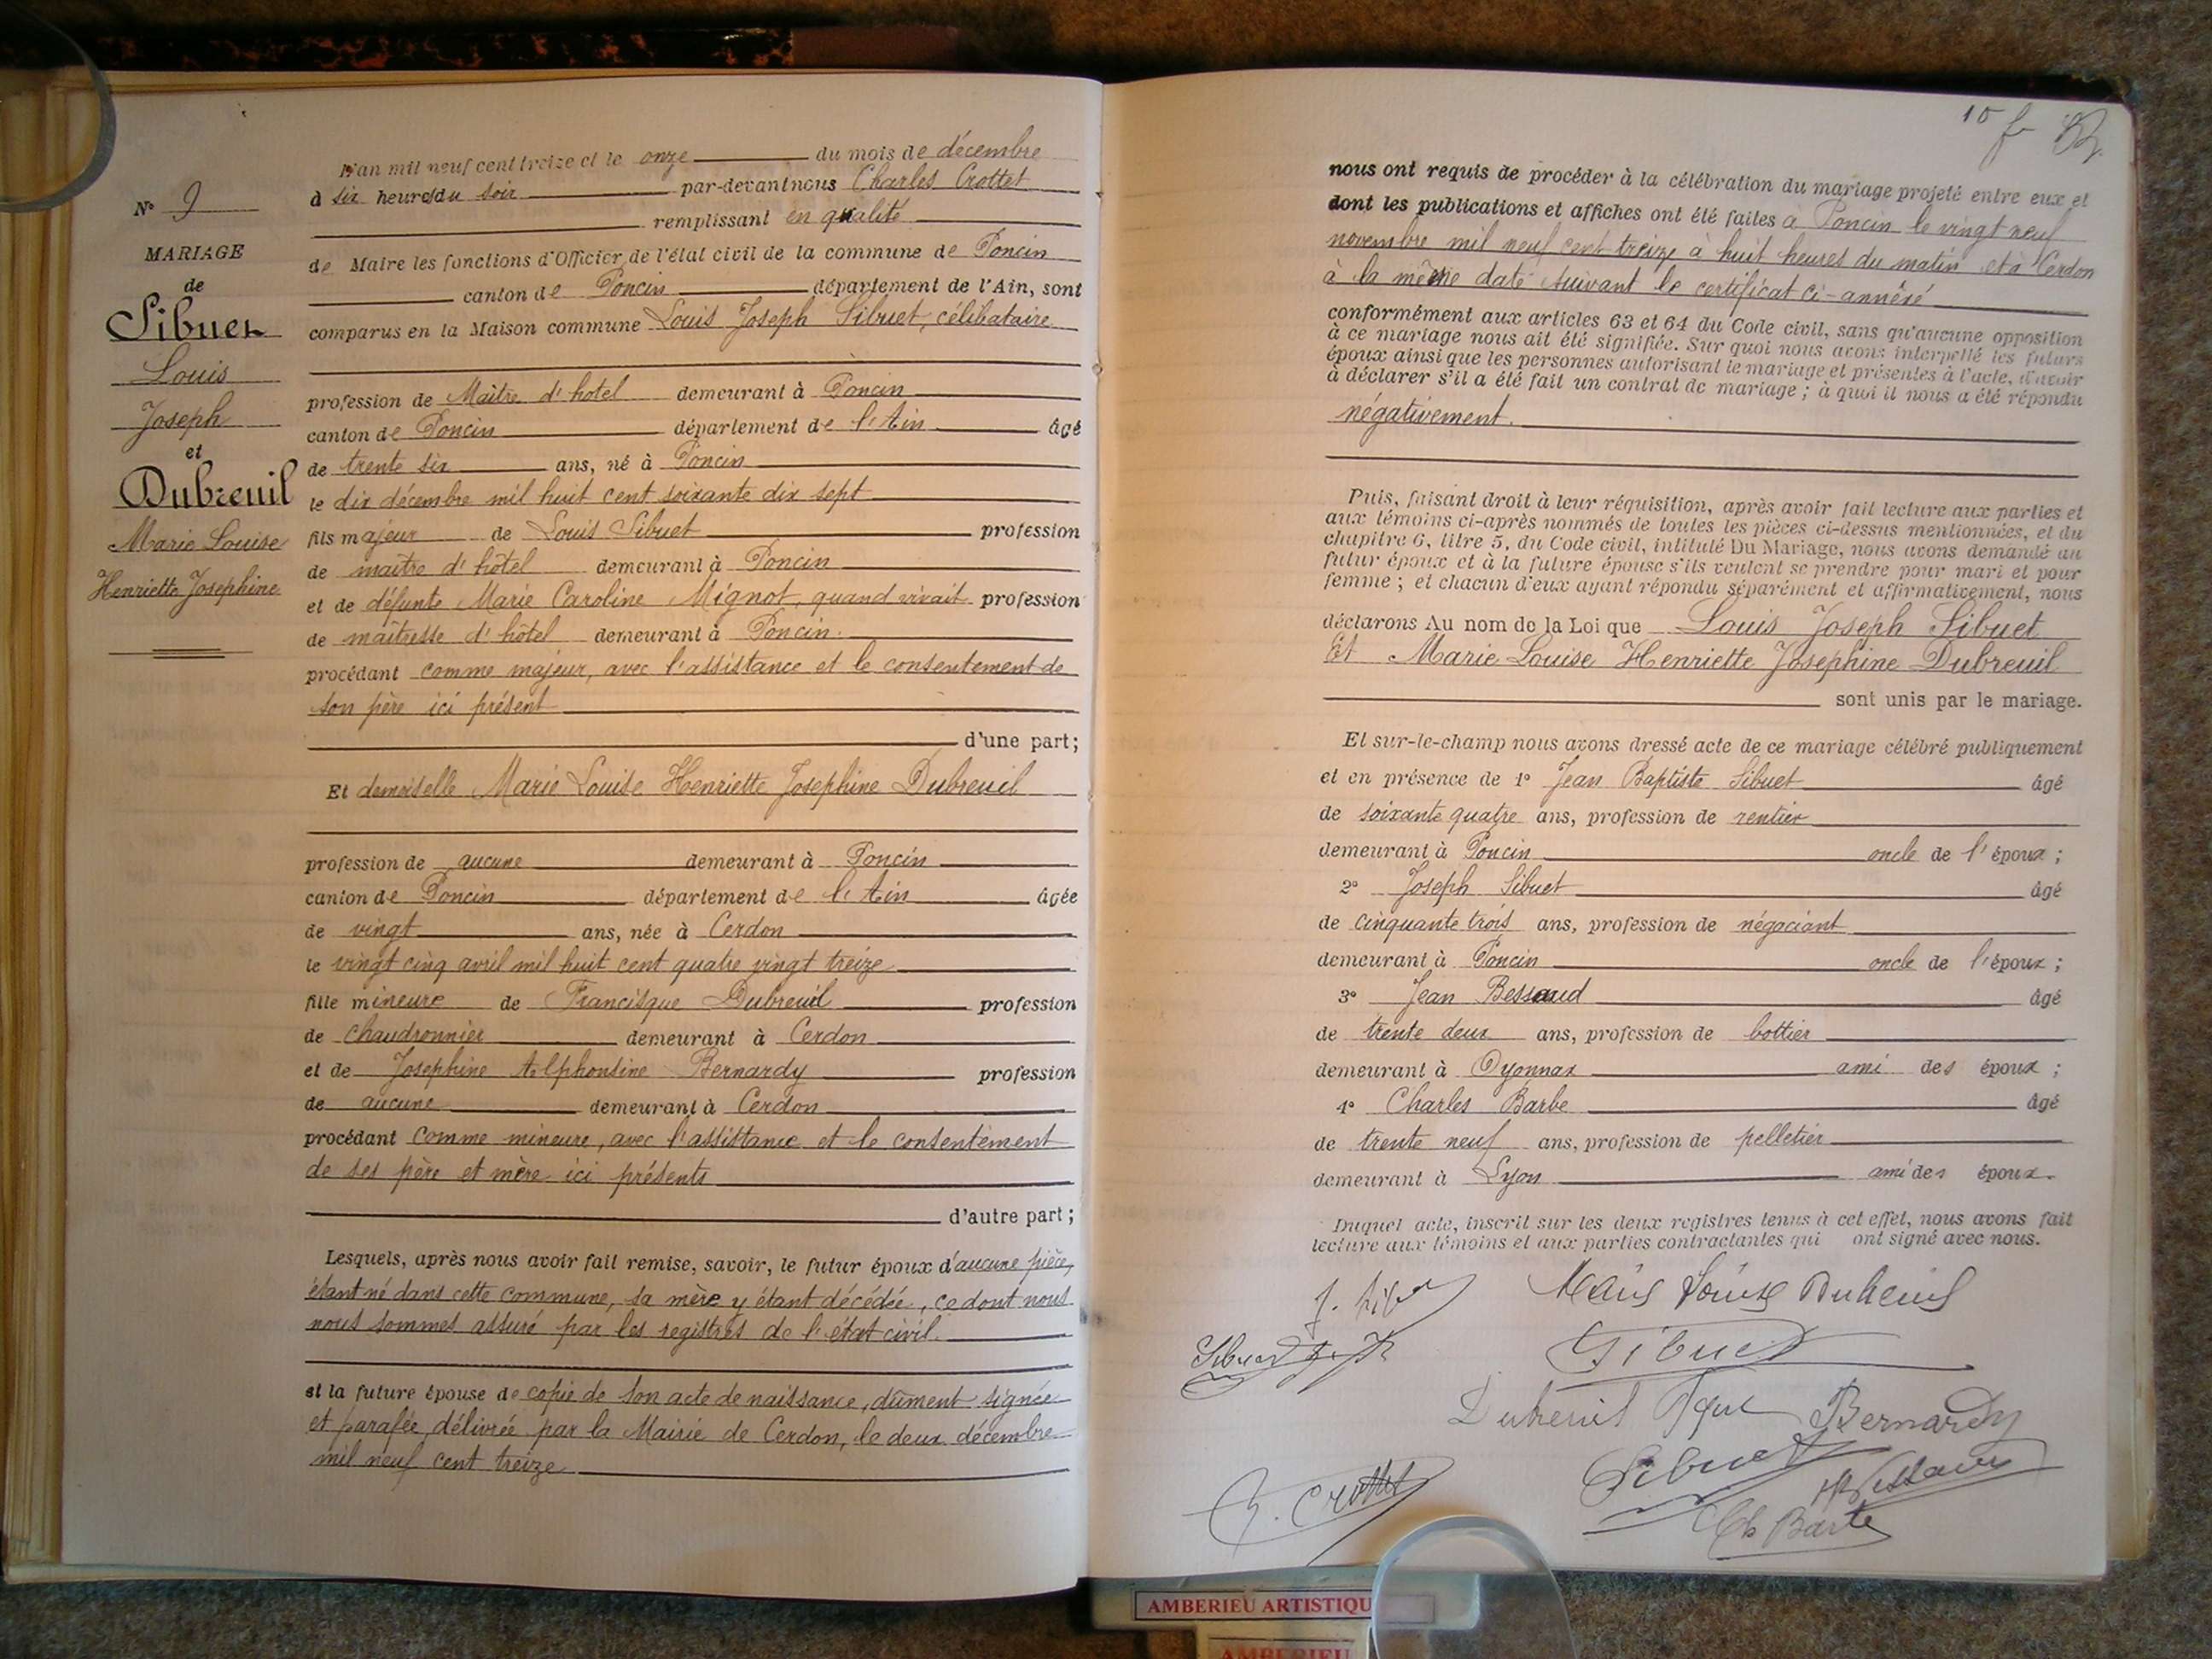 N° 9
MARIAGE
de
Sibuet
Louis
Joseph
et
Dubreuil
Marie Louise
Henriette Josephine
L'an mil neuf cent treize et le onze du mois de décembre
à six heures du soir par-devant nous Charles Crottet
remplissant en qualité
de Maire les fonctions d'Officier de l'état civil de la commune de Poncin
canton de Poncin département de l'Ain, sont
comparus en la Maison commune Louis Joseph Sibuet, célibataire
profession de Maître d'hotel demeurant à Poncin
canton de Poncin département de l'Ain âgé
de trente six ans, né à Poncin
le dix décembre mil huit cent soixante dix sept
fils majeur de Louis Sibuet profession
de maître d'hôtel demeurant à Poncin
et de défunte Marie Caroline Mignot, quand vivait profession
de maîtresse d'hôtel demeurant à Poncin.
procédant comme majeur, avec l'assistance et le consentement de
son père ici présent
d'une part;
Et demoiselle Marie Louise Henriette Josephine Dubreuil
profession de aucune demeurant à Poncin
canton de Poncin département de l'Ain âgée
de vingt ans, née à Cerdon
le vingt cinq avril mil huit cent quatre vingt treize
fille mineure de Francisque Dubreuil profession
de chaudronnier demeurant à Cerdon
et de Josephine Alphonsine Bernardy profession
de aucune demeurant à Cerdon
procédant comme mineure, avec l'assistance et le consentement
de ses père et mère ici présents
d'autre part;
Lesquels, après nous avoir fait remise, savoir, le futur époux d'aucune pièce,
étant né dans cette commune, sa mère y étant décédée, ce dont nous
nous sommes assuré par les registres de l'état civil.
et la future épouse de copie de son acte de naissance, dûment signée
et parafée délivrée par la Mairie de Cerdon, le deux décembre
mil neuf cent treize
10
nous ont requis de procéder à la célébration du mariage projeté entre eux et
dont les publications et affiches ont été faites à Poncin le vingt neuf
novembre mil neuf cent treize à huit heures du matin et à Cerdon
à la même date suivant le certificat ci-annéxé
conformément aux articles 63 et 64 du Code civil, sans qu'aucune opposition
à ce mariage nous ait été signifiée. Sur quoi nous avons interpellé les futurs
époux ainsi que les personnes autorisant le mariage et présentes à l'acte, d'avoir
à déclarer s'il a été fait un contrat de mariage; à quoi il nous a été répondu
négativement.
Puis, faisant droit à leur réquisition, après avoir fait lecture aux parties et
aux témoins ci-après nommés de toutes les pièces ci-dessus mentionnées, et du
chapitre 6, titre 5, du Code civil, intitulé Du Mariage, nous avons demandé au
futur époux et à la future épouse s'ils veulent se prendre pour mari et pour
femme; et chacun d'eux ayant répondu séparément et affirmativement, nous
déclarons Au nom de la Loi que Louis Joseph Sibuet
Et Marie Louise Henriette Josephine Dubreuil
sont unis par le mariage.
Et sur-le-champ nous avons dressé acte de ce mariage célébré publiquement
et en présence de 1° Jean Baptiste Sibuet âgé
de soixante quatre ans, profession de rentier
demeurant à Poncin oncle de l'époux;
2° Joseph Sibuet âgé
de cinquante trois ans, profession de négociant
demeurant à Poncin oncle de l'époux;
3° Jean Bessaud âgé
de trente deux ans, profession de bottier
demeurant à Oyonnax ami des époux;
4° Charles Barbe âgé
de trente neuf ans, profession de pelletier
demeurant à Lyon ami des époux.
Duquel acte, inscrit sur les deux registres tenus à cet effet, nous avons fait
lecture aux témoins et aux parties contractantes qui ont signé avec nous.
Marie Louise Dubreuil
Sibuet
Dubreuil Bernardy
Sibuet
C. Crottet
Ch Barbe
AMBERIEU ARTISTIQU
AMBERIEU